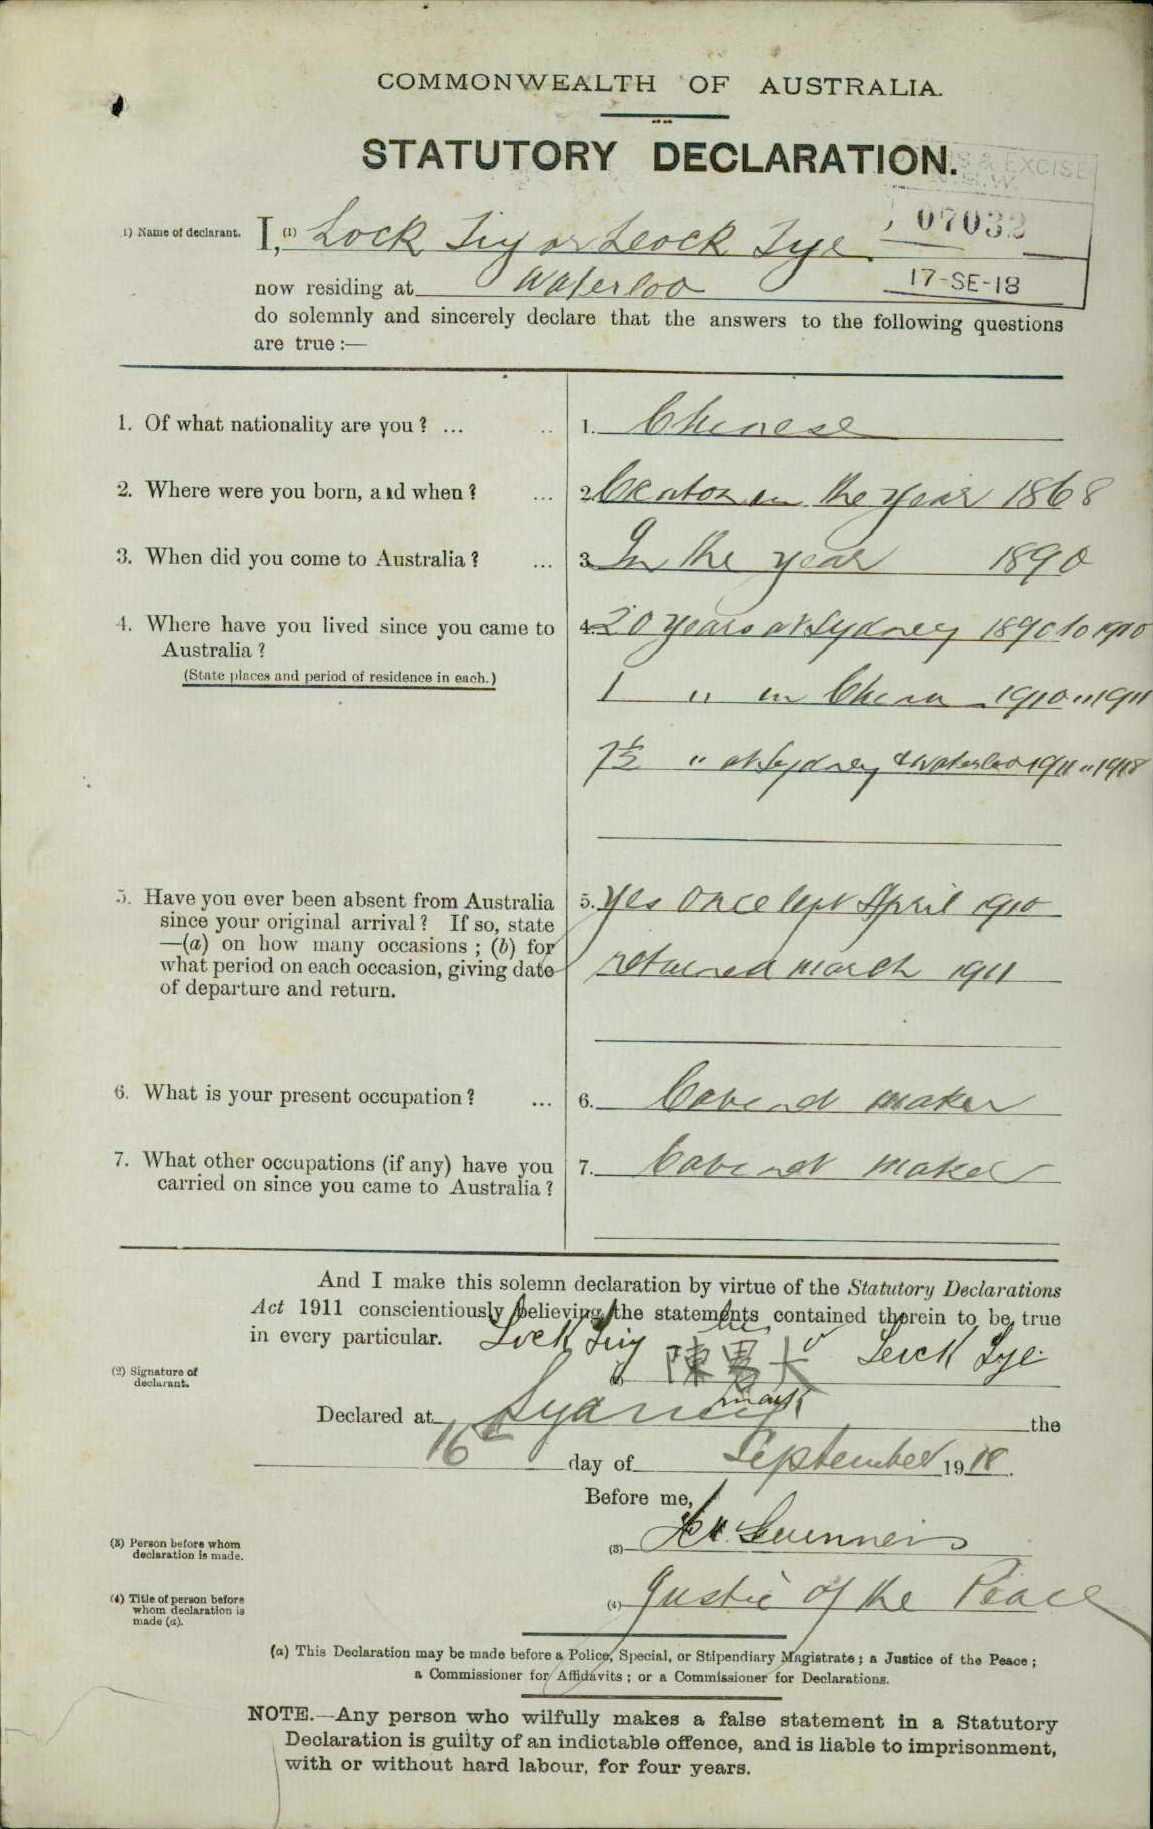 COMMONWEALTH OF AUSTRALIA.
STATUTORY DECLARATION.
S & EXCISE
N.S.W.
07032
17-SE-18
1) Name of declarant.
I, (1) Lock Tiy or Leock Tye
now residing at Waterloo
do solemnly and sincerely declare that the answers to the following questions
are true:—
1. Of what nationality are you? ... ..
1. Chinese
2. Where were you born, and when? ...
2. Canton in the year 1868
3. When did you come to Australia? ...
3. In the year 1890
4. Where have you lived since you came to
Australia?
(State places and period of residence in each.)
4. 20 years at Sydney 1890 to 1910
1 " in China 1910 " 1911
7½ " at Sydney & Waterloo 1911 " 1918
5. Have you ever been absent from Australia
since your original arrival? If so, state
—(a) on how many occasions; (b) for
what period on each occasion, giving date
of departure and return.
5. Yes once left April 1910
returned March 1911
6. What is your present occupation? ...
6. Cabinet maker
7. What other occupations (if any) have you
carried on since you came to Australia?
7. Cabinet maker
And I make this solemn declaration by virtue of the Statutory Declarations
Act 1911 conscientiously believing the statements contained therein to be true
in every particular.
(2) Signature of
declarant.
Lock Tiy his 陳 Leock Tye
mark
Declared at Sydney the
16th day of September 1918.
Before me,
(3) Person before whom
declaration is made.
(3)
(4) Title of person before
whom declaration is
made (a).
(4) Justice of the Peace
(a) This Declaration may be made before a Police, Special, or Stipendiary Magistrate; a Justice of the Peace;
a Commissioner for Affidavits; or a Commissioner for Declarations.
NOTE.—Any person who wilfully makes a false statement in a Statutory
Declaration is guilty of an indictable offence, and is liable to imprisonment,
with or without hard labour, for four years.